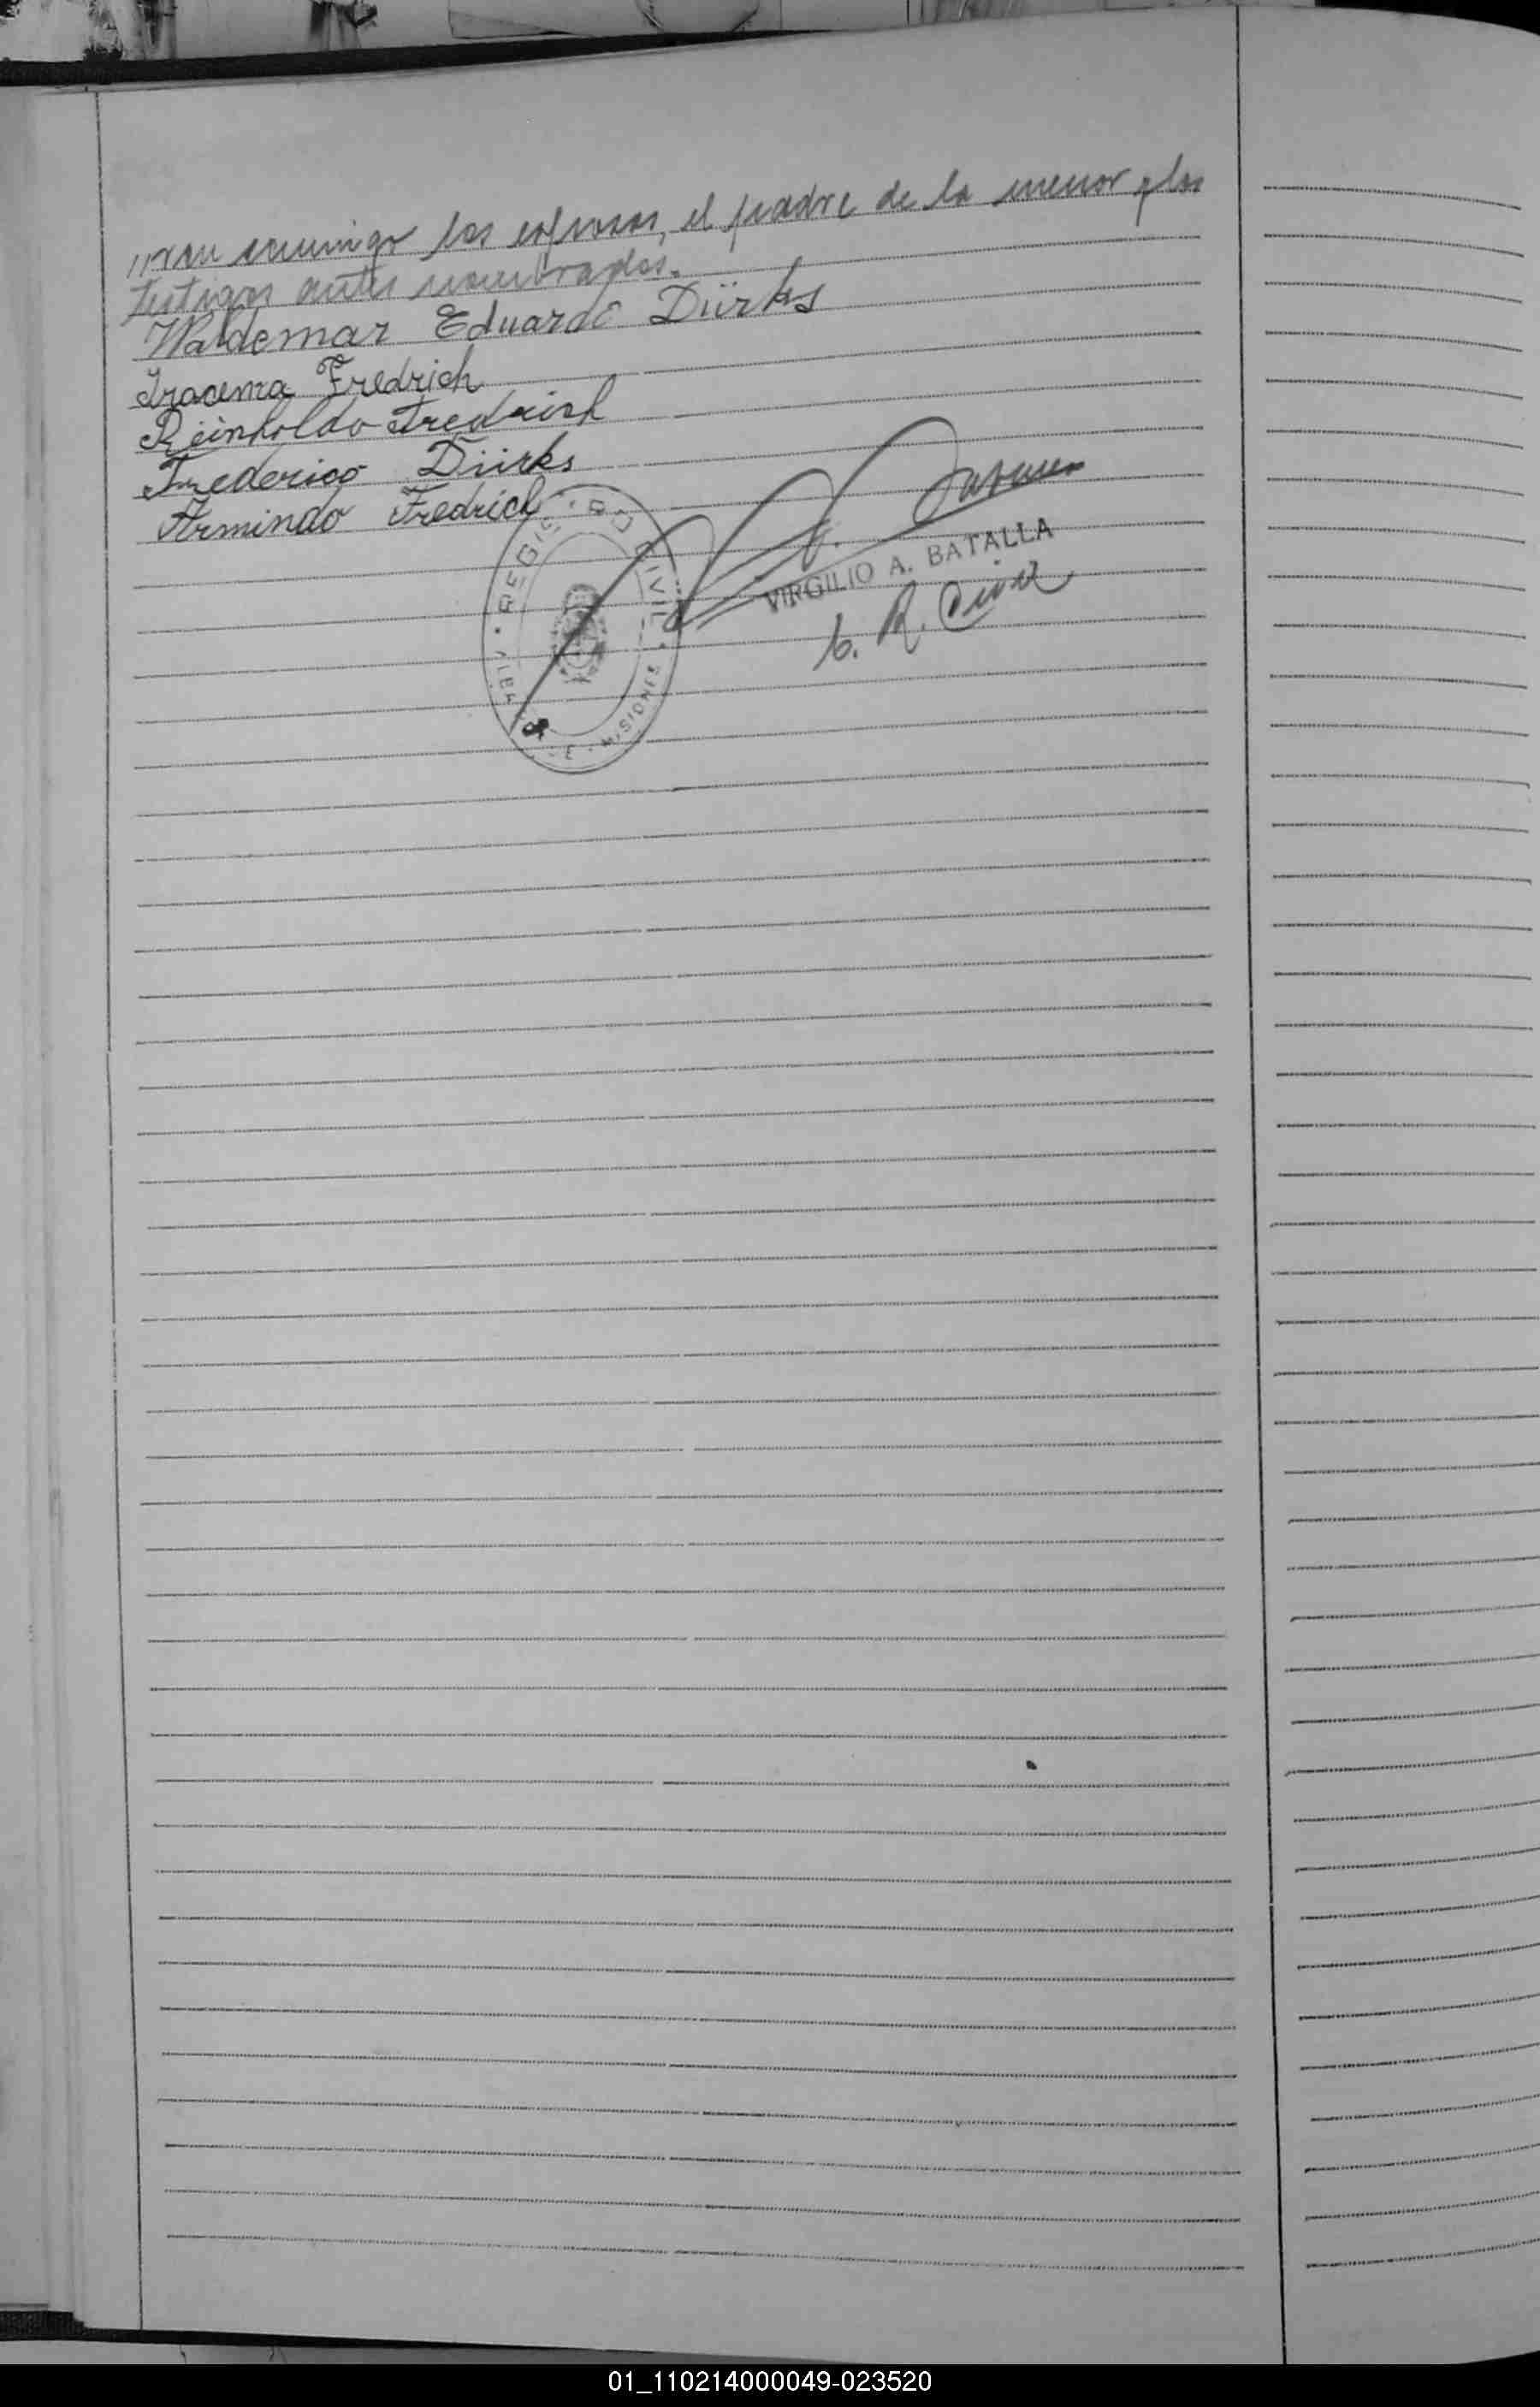 ///ran conmigo los esposos, el padre de la menor y los
testigos antes nombrados.
Waldemar Eduardo Dürks
Iracema Fredrich
Reinholdo Fredrich
Frederico Dürks
Armindo Fredrich
REGISTRO CIVIL
MISIONES
VIRGILIO A. BATALLA
R. Civil
01_110214000049-023520